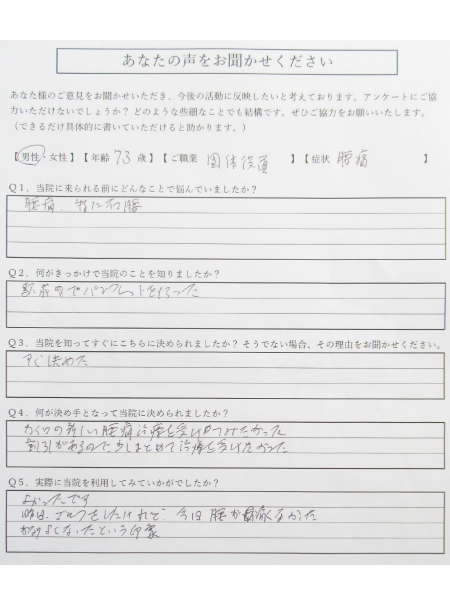 あなたの声をお聞かせください
あなた様のご意見をお聞かせいただき、今後の活動に反映したいと考えております。アンケートにご協
力いただけないでしょうか？どのような些細なことでも結構です。ぜひご協力をお願いいたします。
（できるだけ具体的に書いていただけると助かります。）
【男性・女性】【年齢 73 歳】【ご職業 団体役員 】【症状 腰痛 】
Q1．当院に来られる前にどんなことで悩んでいましたか？
腰痛、特に右腰
Q2．何がきっかけで当院のことを知りましたか？
駅前でパンフレットを
Q3．当院を知ってすぐにこちらに決められましたか？そうでない場合、その理由をお聞かせください。
すぐ決めた
Q4．何が決め手となって当院に決められましたか？
カイロの新しい腰痛治療を受けてみたかった
割引があるので少しまとめて治療を受けたかった
Q5．実際に当院を利用してみていかがでしたか？
よかったです
昨日、ゴルフをしたけれど、今日腰が痛くなかった
かなりよくなったという印象